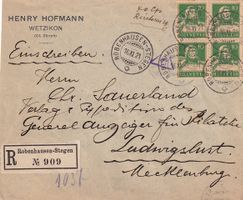 HENRY HOFMANN
WETZIKON
(Ct. Zürich)
Einschreiben.
ROBENHAUSEN-SEGEN
Herrn
Chr. Sauerland
Verlag & Expedition des
General Anzeiger für Philatelie
Ludwigslust.
Mecklenburg.
R
Robenhausen-Stegen
№ 909